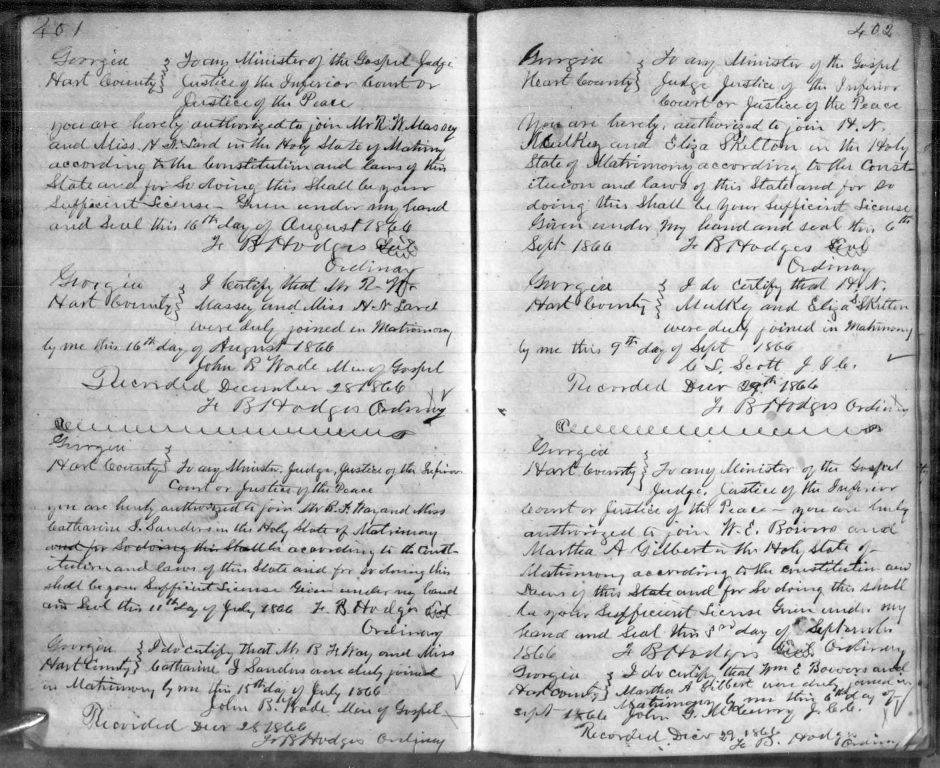 401
Georgia } To any Minister of the Gospel Judge
Hart County } Justice of the Inferior Court or
Justice of the Peace
you are herely authorized to join Mr R. W. Massey
and Miss H N. Lard in the Holy State of Matrimony
according to the Constitution and laws of this
State and for So doing this Shall be your
Sufficient License - Given under my hand
and Seal this 16th day of August 1866
F. B Hodges Seal
Ordinary
Georgia } I Certify that Mr R. W.
Hart County } Massey and Miss H. N Lard
were duly joined in Matrimony
by me this 16th day of August 1866
John B Wade Min of Gospel
Recorded December 28 1866
F. B Hodges Ordinary
Georgia }
Hart County } To any Minister, Judge, Justice of the Inferior
Court or Justice of the Peace
you are herely authorized to join Mr B. F. Way and Miss
Catharine J. Sanders in the Holy State of Matrimony
and for So doing this Shall be according to the Const-
itution and laws of this State and for So doing this
shall be your Sufficient License Given under my hand
and Seal this 11th day of July 1866 F. B Hodges Seal
Ordinary
Georgia } I do certify that Mr B. F. Way and Miss
Hart County } Catharine J Sanders were duly joined
in Matrimony by me this 15th day of July 1866
John B. Wade Min of Gospel
Recorded Decr 28 1866
F. B Hodges Ordinary
402
Georgia } To any Minister of the Gospel
Hart County } Judge Justice of the Inferior
Court or Justice of the Peace
You are herely, authorized to join H. N.
Mulkey and Eliza Skelton in the Holy
State of Matrimony according to the Const-
itution and laws of this State and for so
doing this shall be your Sufficient License
Given under my hand and seal this 6th
Sept 1866 F. B Hodges Seal
Ordinary
Georgia } I do certify that H. N.
Hart County } Mulkey and Eliza Skelton
were duly joined in Matrimony
by me this 9th day of Sept 1866
Scott J. I. C.
Recorded Decr 29th 1866
F. B Hodges Ordinary
Georgia }
Hart County } To any Minister of the Gospel
Judge, Justice of the Inferior
Court or Justice of the Peace - you are herely
authorized to join W. E. Bowers and
Martha A Gilbert in the Holy State of
Matrimony according to the Constitution and
Laws of this State and for So doing this shall
be your Sufficient License Given under my
hand and Seal this 3rd day of September
1866 F. B Hodges Seal Ordinary
Georgia } I do certify that Wm E Bowers and
Hart County } Martha A Gilbert were duly joined in
Matrimony by me this 6th day of
Sept 1866 John G. McCurry J. I. C.
Recorded Decr 29, 1866
F. B. Hodges Ordinary